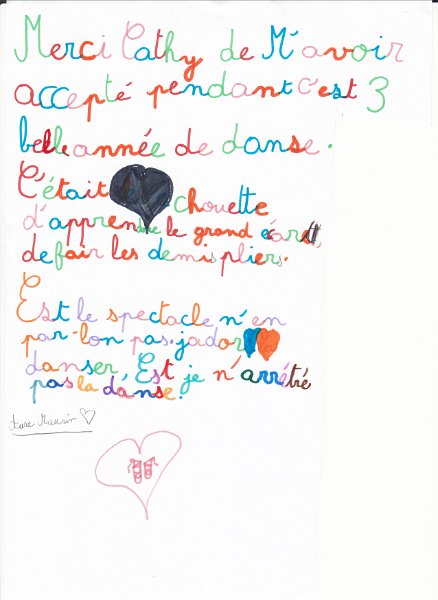 Merci Cathy de M'avoir
accepté pendant c'est 3
belle année de danse.
C'était chouette
d'apprendre le grand écart,
de fair les demis pliers.
Est le spectacle n'en
par-lon pas. j'ador
danser. Est je n'arrétré
pas la danse.